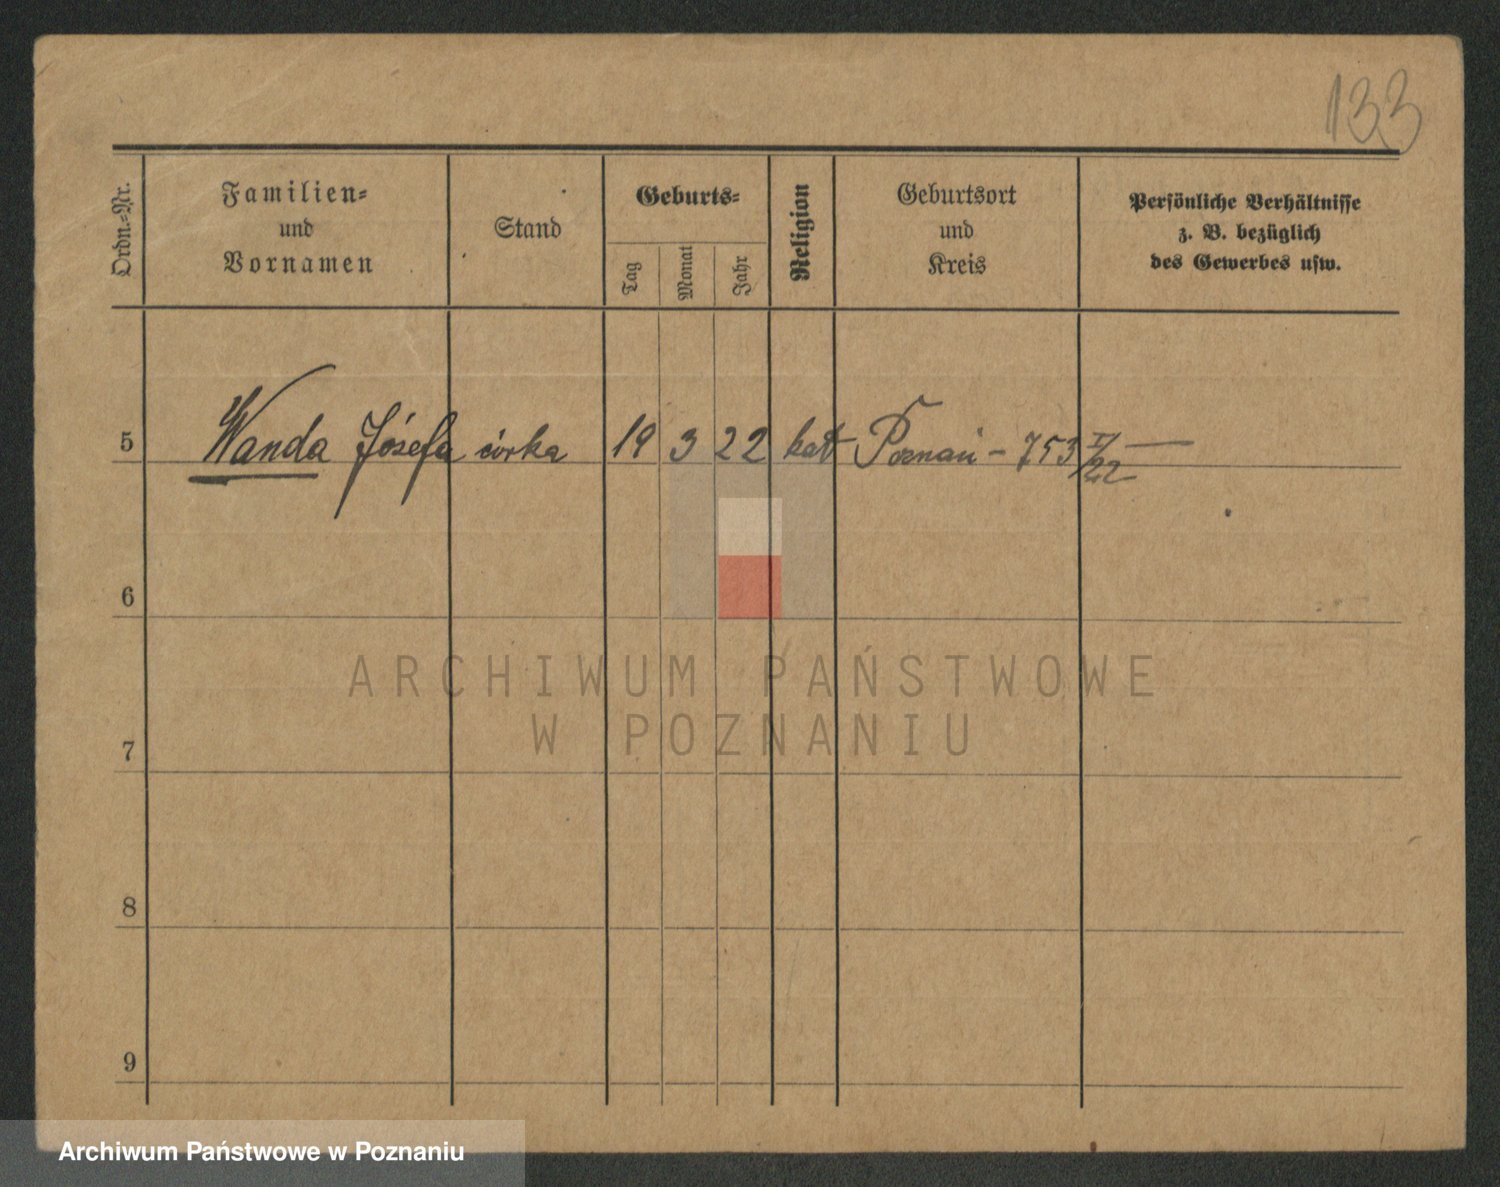 133
Ordn.-Nr.
Familien-
und
Vornamen
Stand
Geburts-
Tag
Monat
Jahr
Religion
Geburtsort
und
Kreis
Persönliche Verhältnisse
z. B. bezüglich
des Gewerbes usw.
5 Wanda Józefa córka 19 3 22 kat Poznań - 753 II/22 —
6
ARCHIWUM PAŃSTWOWE
W POZNANIU
7
8
9
Archiwum Państwowe w Poznaniu